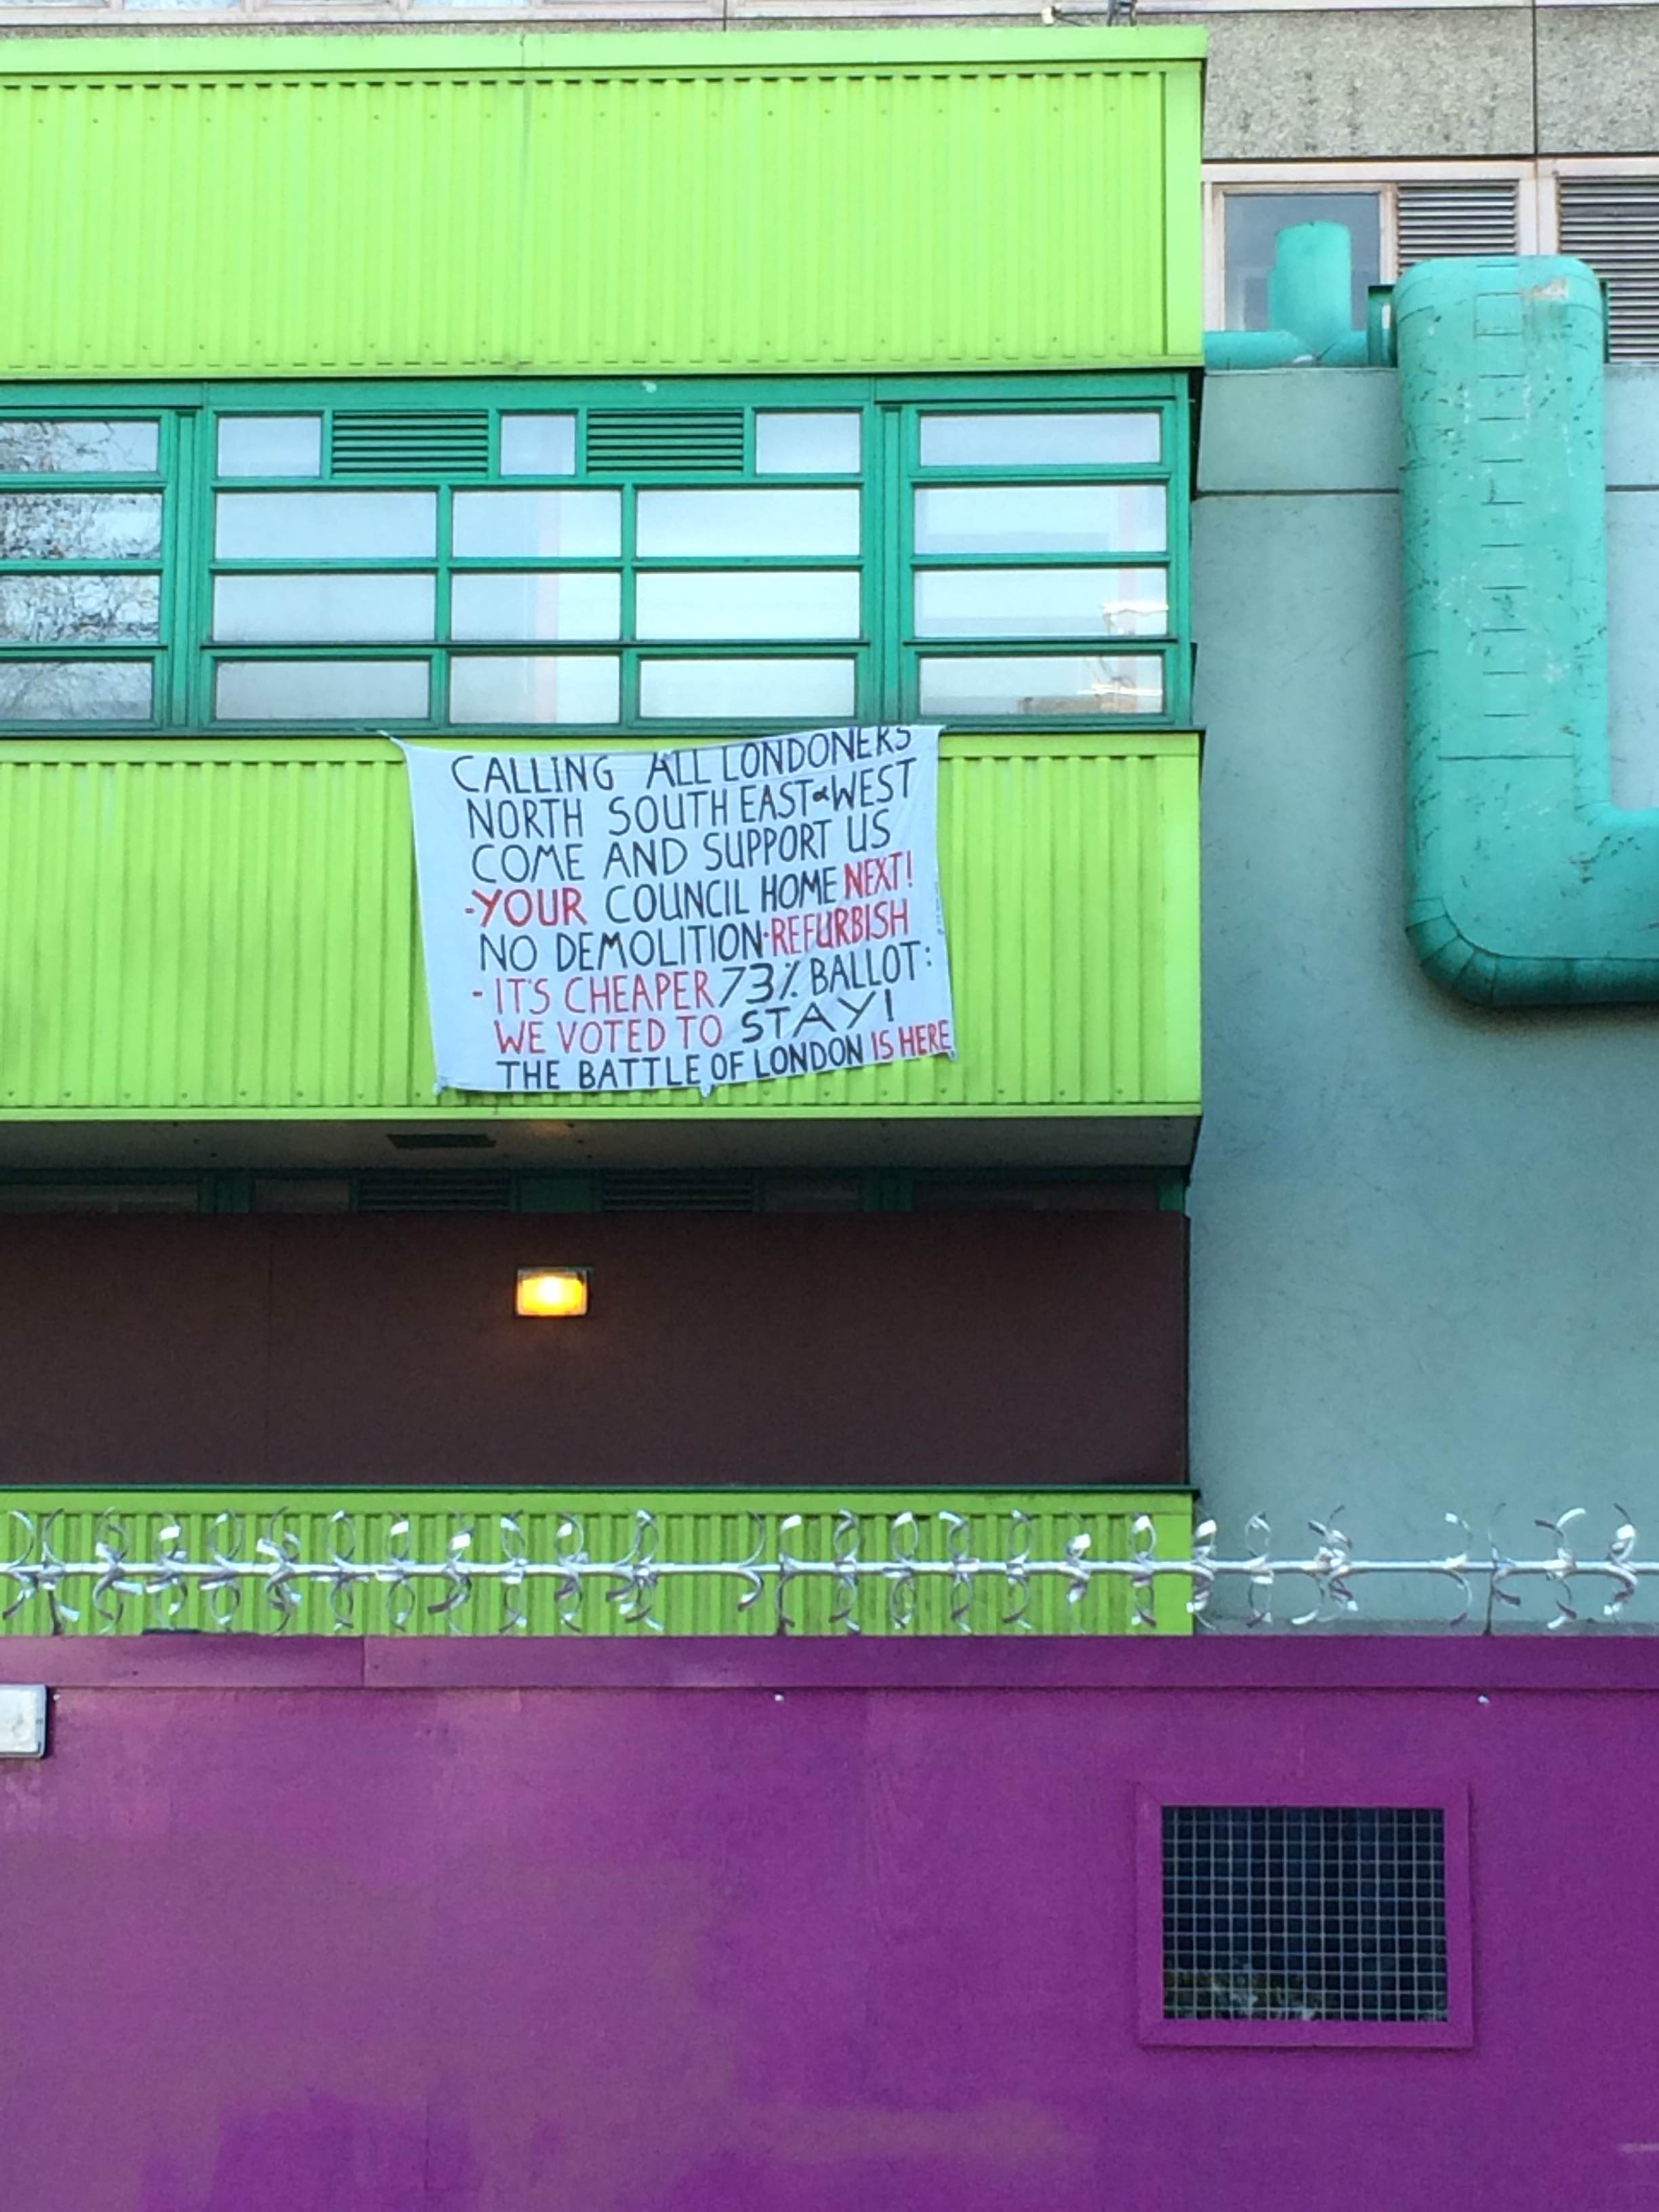 CALLING ALL LONDONERS
NORTH SOUTH EAST & WEST
COME AND SUPPORT US
-YOUR COUNCIL HOME NEXT!
NO DEMOLITION·REFURBISH
- IT'S CHEAPER 73% BALLOT:
WE VOTED TO STAY!
THE BATTLE OF LONDON IS HERE